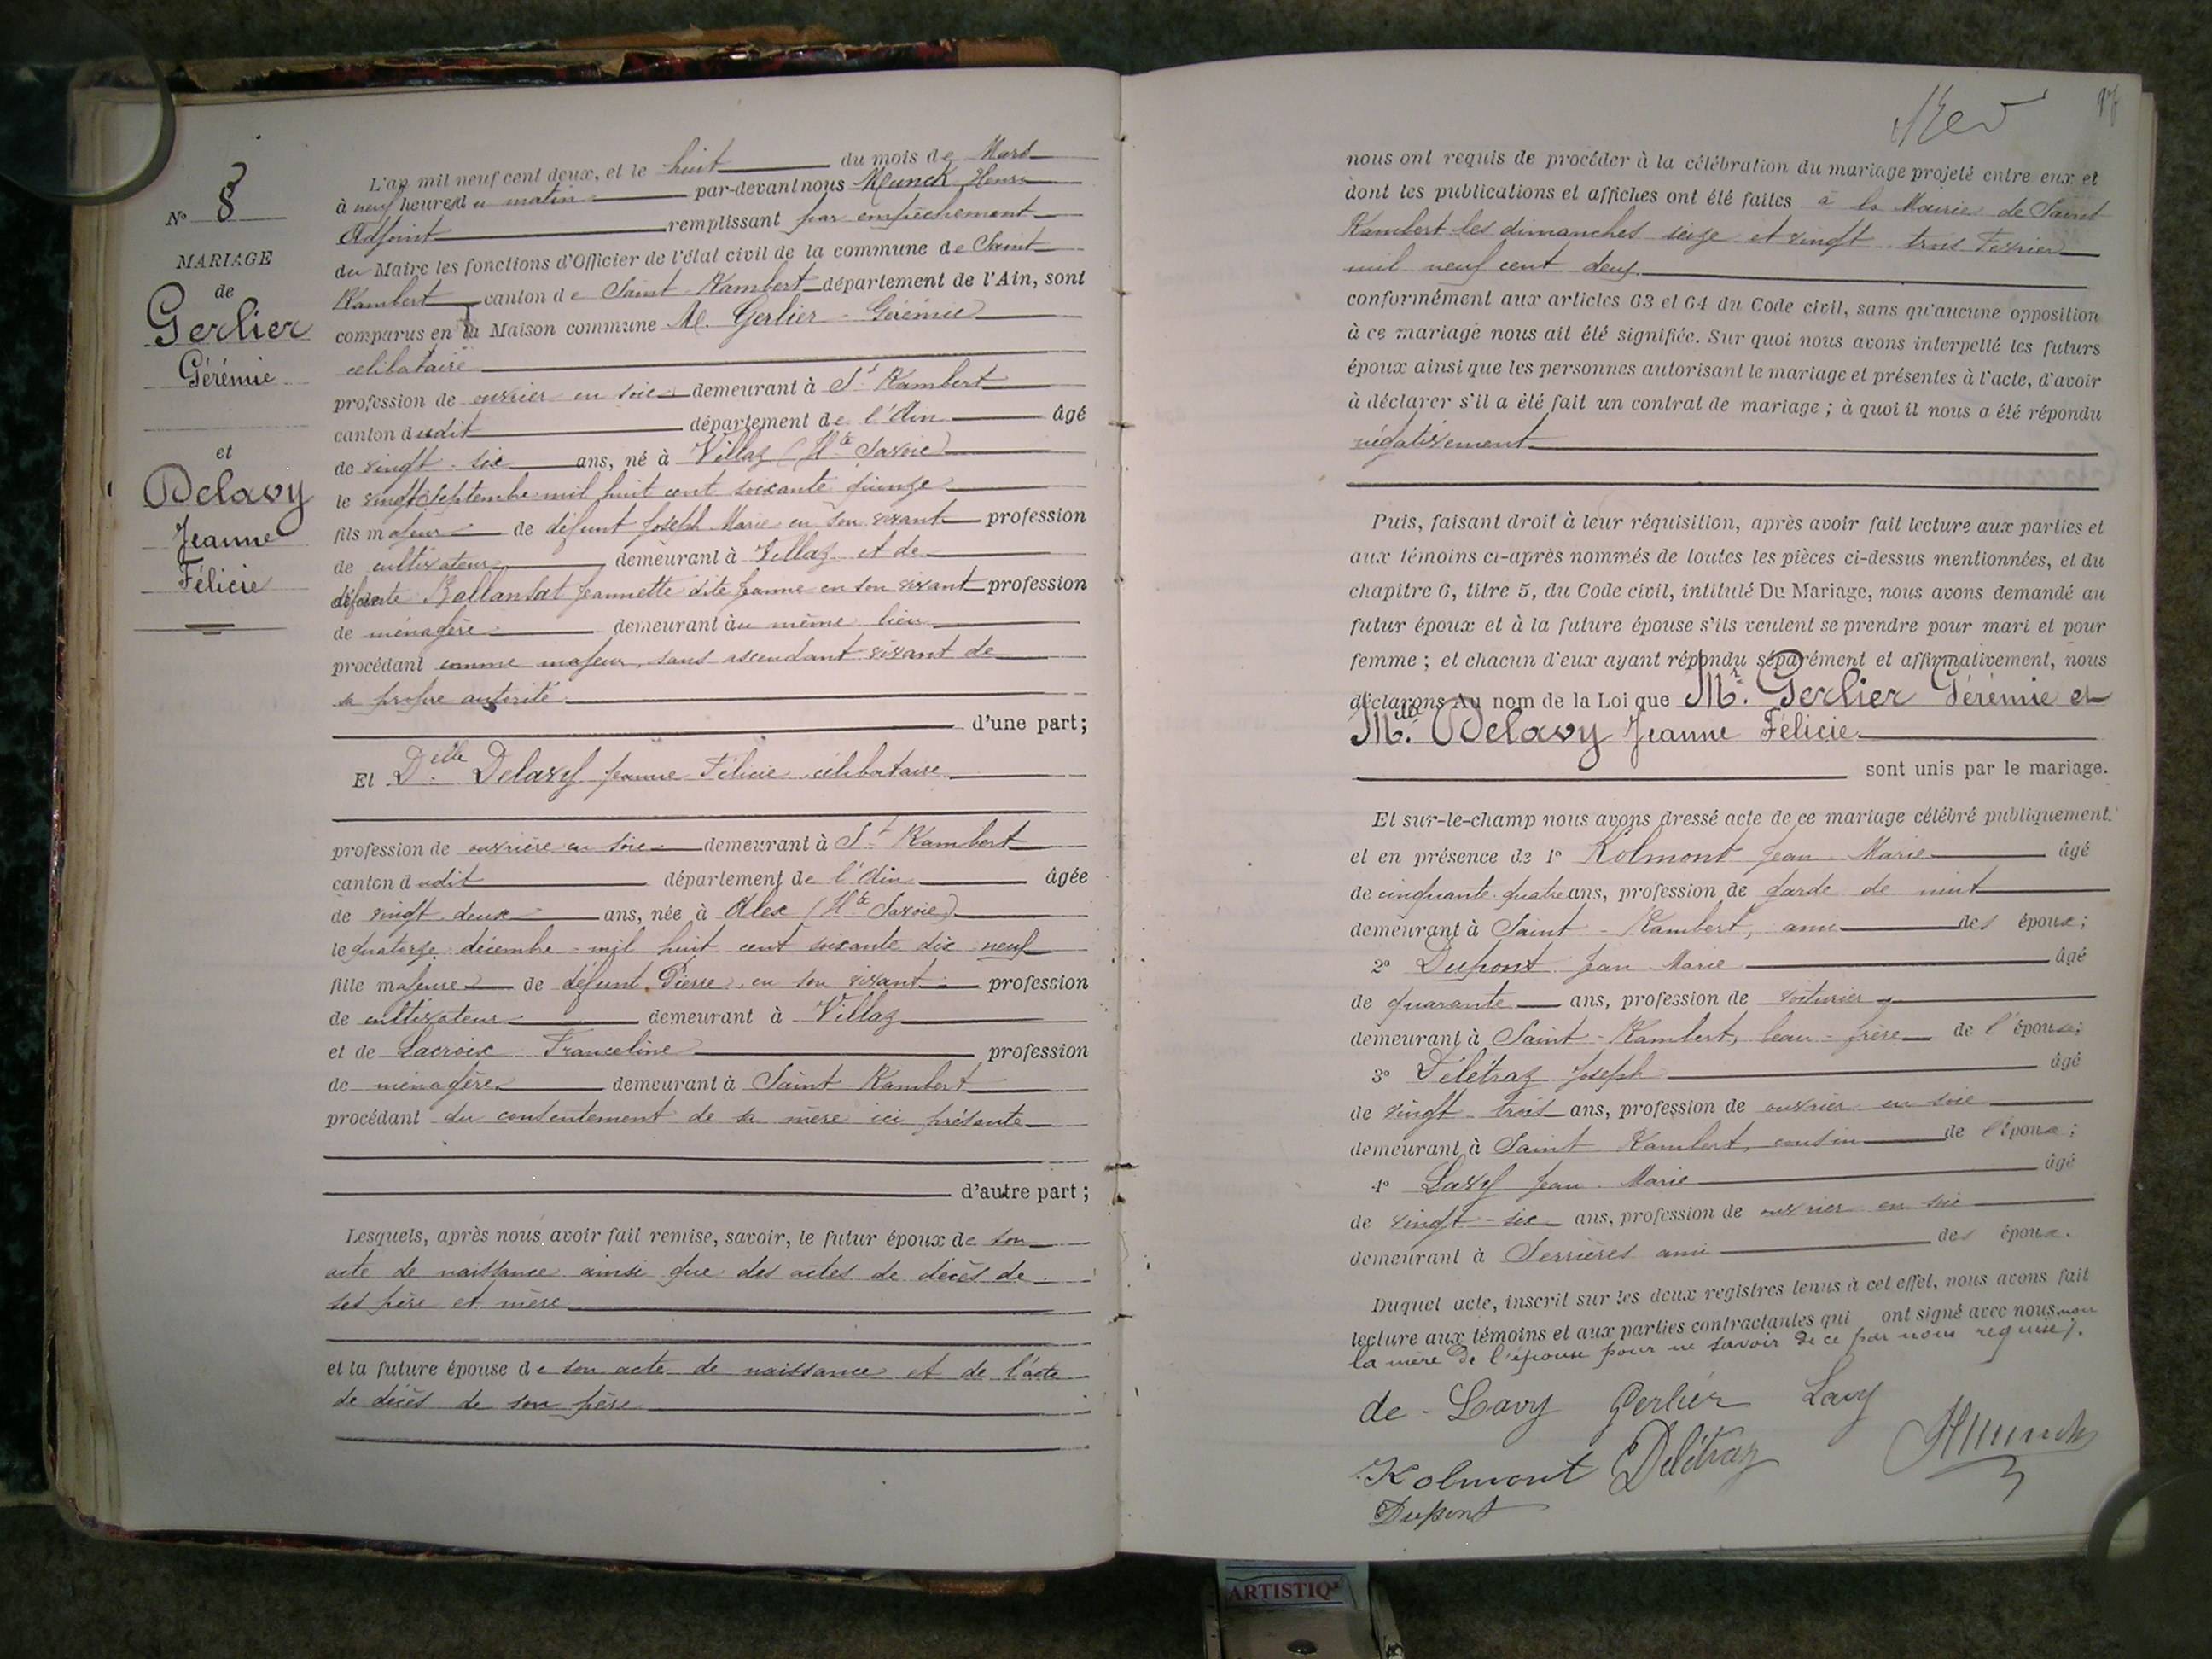 N° 8
MARIAGE
de
Gerlier
Gérémie
et
Delavy
Jeanne
Félicie
L'an mil neuf cent deux, et le huit du mois de Mars
à neuf heures du matin par-devant nous Munck Henri
Adjoint remplissant par empêchement
du Maire les fonctions d'Officier de l'état civil de la commune de Saint
Rambert canton de Saint-Rambert département de l'Ain, sont
comparus en la Maison commune M. Gerlier Gérémie
célibataire
profession de ouvrier en soie demeurant à St Rambert
canton dudit département de l'Ain âgé
de vingt-six ans, né à Villaz (Hte Savoie)
le vingt septembre mil huit cent soixante quinze
fils majeur de défunt Joseph Marie en son vivant profession
de cultivateur demeurant à Villaz et de
défunte Ballansat Jeannette dite Jeanne en son vivant profession
de ménagère demeurant au même lieu
procédant comme majeur, sans ascendant vivant de
sa propre autorité
d'une part;
Et Delle Delavy Jeanne Félicie célibataire
profession de ouvrière en soie demeurant à St Rambert
canton dudit département de l'Ain âgée
de vingt deux ans, née à Alex (Hte Savoie)
le quatorze décembre mil huit cent soixante dix neuf
fille majeure de défunt Pierre, en son vivant profession
de cultivateur demeurant à Villaz
et de Lacroix Franceline profession
de ménagère demeurant à Saint-Rambert
procédant du consentement de sa mère ici présente
d'autre part;
Lesquels, après nous avoir fait remise, savoir, le futur époux de son
acte de naissance ainsi que des actes de décès de
ses père et mère
et la future épouse de son acte de naissance et de l'acte
de décès de son père
17
nous ont requis de procéder à la célébration du mariage projeté entre eux et
dont les publications et affiches ont été faites à la Mairie de Saint
Rambert les dimanches seize et vingt trois Février
mil neuf cent deux
conformément aux articles 63 et 64 du Code civil, sans qu'aucune opposition
à ce mariage nous ait été signifiée. Sur quoi nous avons interpellé les futurs
époux ainsi que les personnes autorisant le mariage et présentes à l'acte, d'avoir
à déclarer s'il a été fait un contrat de mariage; à quoi il nous a été répondu
négativement
Puis, faisant droit à leur réquisition, après avoir fait lecture aux parties et
aux témoins ci-après nommés de toutes les pièces ci-dessus mentionnées, et du
chapitre 6, titre 5, du Code civil, intitulé Du Mariage, nous avons demandé au
futur époux et à la future épouse s'ils veulent se prendre pour mari et pour
femme; et chacun d'eux ayant répondu séparément et affirmativement, nous
déclarons Au nom de la Loi que Mr. Gerlier Gérémie et
Mlle. Delavy Jeanne Félicie
sont unis par le mariage.
Et sur-le-champ nous avons dressé acte de ce mariage célébré publiquement
et en présence de 1° Kolmont Jean-Marie âgé
de cinquante quatre ans, profession de garde de nuit
demeurant à Saint-Rambert, ami des époux;
2° Dupont Jean Marie âgé
de quarante ans, profession de voiturier
demeurant à Saint-Rambert, beau-frère de l'épouse;
3° Délétraz Joseph âgé
de vingt-trois ans, profession de ouvrier en soie
demeurant à Saint Rambert, cousin de l'époux;
4° Lavy Jean-Marie âgé
de vingt-six ans, profession de ouvrier en soie
demeurant à Serrières ami des époux.
Duquel acte, inscrit sur les deux registres tenus à cet effet, nous avons fait
lecture aux témoins et aux parties contractantes qui ont signé avec nous, non
la mère de l'épouse pour ne savoir de ce par nous requise.
de-Lavy Gerlier Lavy
Kolmont Delétraz HMunck
Dupont
ARTISTIQ